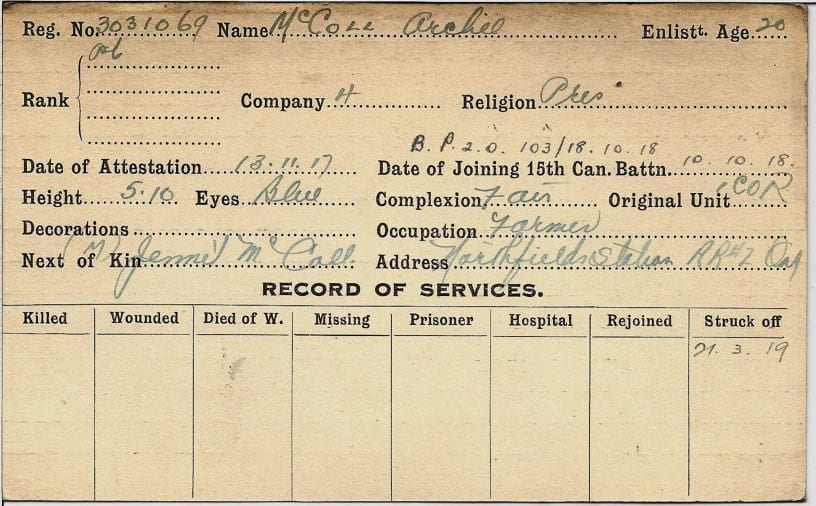 Reg. No. 3031069 Name McColl Archie Enlistt. Age 20
Pte
Rank Company 4 Religion Pres
B.P.2.O. 103/18.10.18
Date of Attestation 13.11.17 Date of Joining 15th Can. Battn. 10.10.18.
Height 5.10 Eyes Blue Complexion Fair Original Unit 1COR
Decorations Occupation Farmer
Next of Kin (M) Jennie McColl Address Northfield Station RR#2 Ont
RECORD OF SERVICES.
Killed Wounded Died of W. Missing Prisoner Hospital Rejoined Struck off
21.3.19